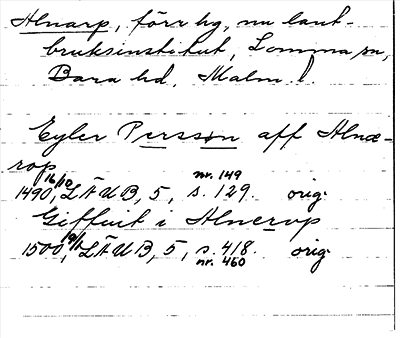 Alnarp, förr hg, nu lant-
bruksinstitut, Lomma sn,
Bara hd, Malm. l.
Eyler Persson aff Alnæ-
rop
1490 16/10, LÄUB, 5, s. 129. nr. 149 orig.
Giffuit i Alnerop
1500 19/1, LÄUB, 5, s. 418. orig.
nr. 460